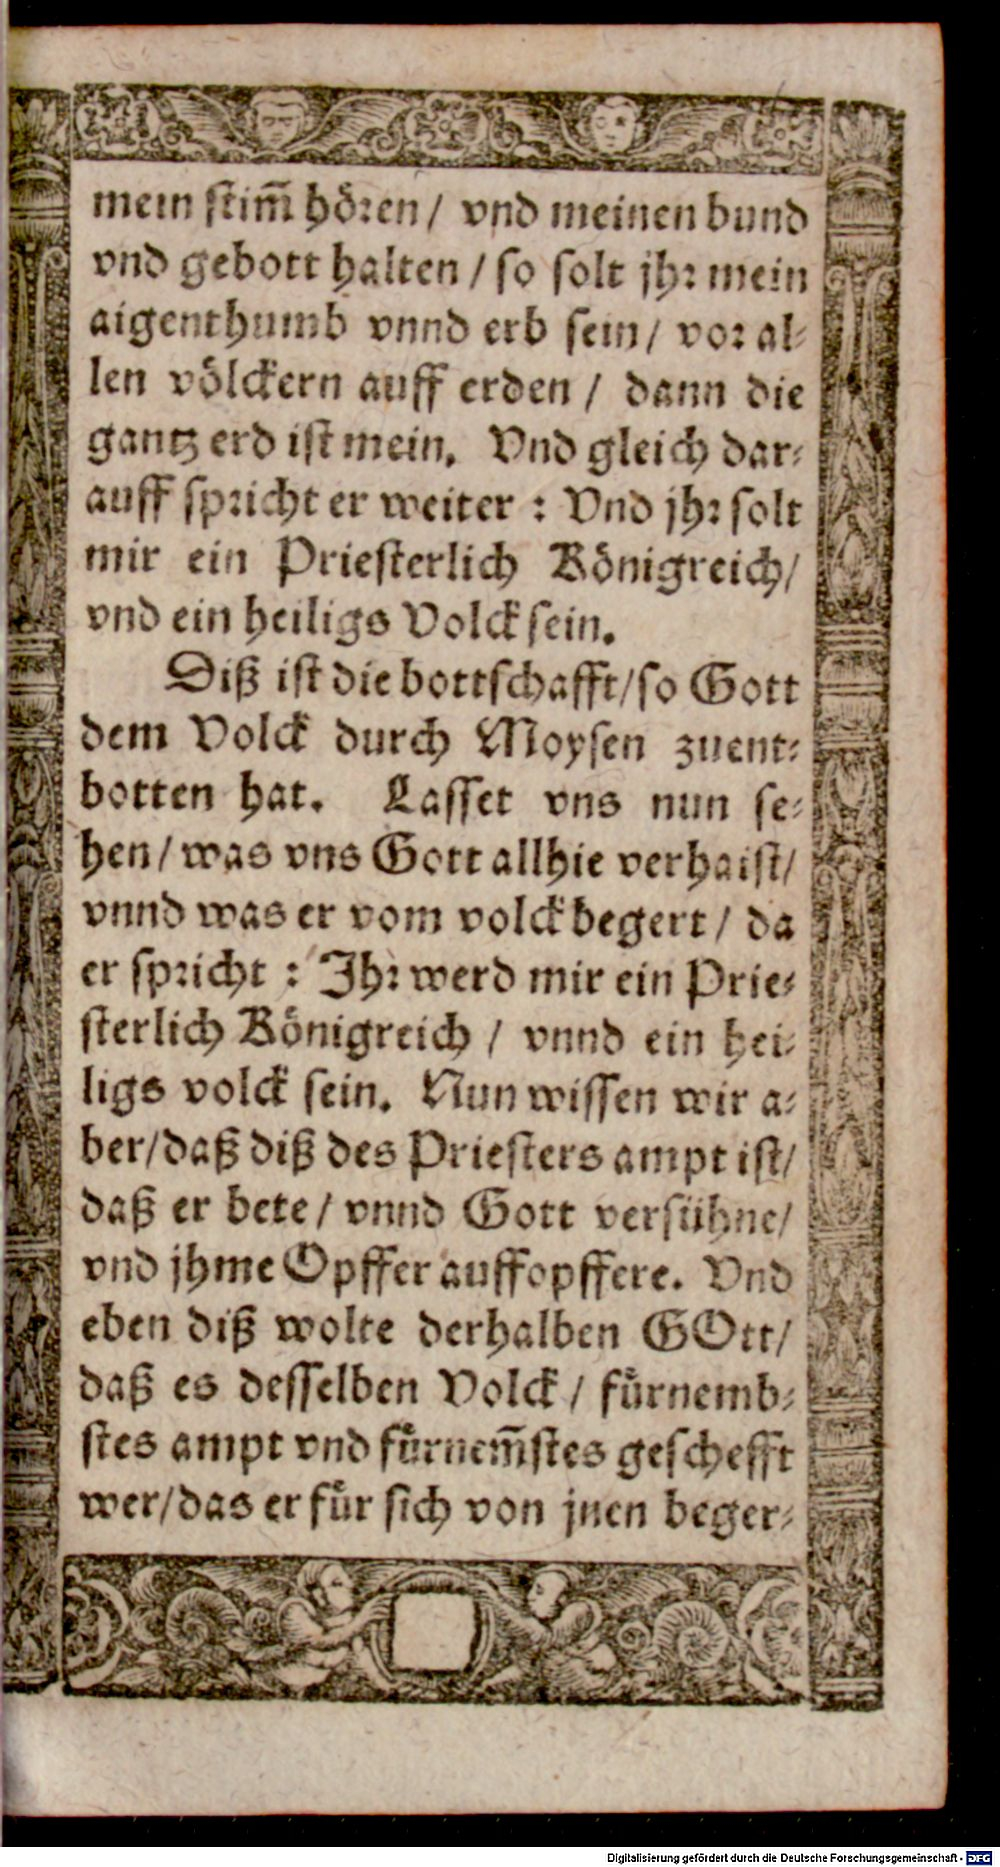 mein stim̃ hören / vnd meinen bund
vnd gebott halten / so solt jhr mein
aigenthumb vnnd erb sein / vor al-
len völckern auff erden / dann die
gantz erd ist mein. Vnd gleich dar-
auff spricht er weiter : Vnd jhr solt
mir ein Priesterlich Königreich/
vnd ein heiligs Volck sein.
Diß ist die bottschafft/so Gott
dem Volck durch Moysen zuent-
botten hat. Lasset vns nun se-
hen / was vns Gott allhie verhaist/
vnnd was er vom volck begert / da
er spricht : Jhr werd mir ein Prie-
sterlich Königreich / vnnd ein hei-
ligs volck sein. Nun wissen wir a-
ber/daß diß des Priesters ampt ist/
daß er bete / vnnd Gott versühne/
vnd jhme Opffer auffopffere. Vnd
eben diß wolte derhalben GOtt/
daß es desselben Volck / fürnemb-
stes ampt vnd fürnem̃stes geschefft
wer/das er für sich von jnen beger-
Digitalisierung gefördert durch die Deutsche Forschungsgemeinschaft - DFG